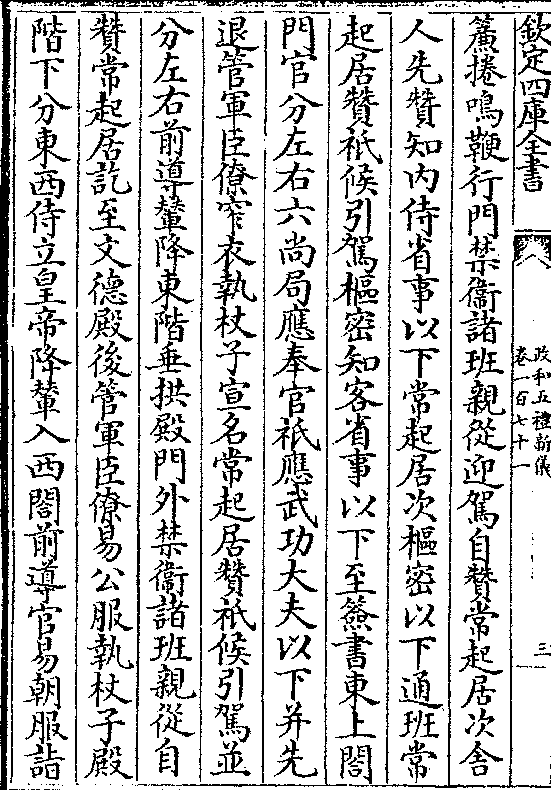 欽定四庫全書
政和五禮新儀
卷一百七十一
三
簾捲鳴鞭行門禁衞諸班親從迎駕自贊常起居次舍
人先贊知内侍省事以下常起居次樞密以下通班常
起居贊祇候引駕樞密知客省事以下至簽書東上閤
門官分左右六尚局應奉官祇應武功大夫以下并先
退管軍臣僚窄衣執杖子宣名常起居贊祇候引駕並
分左右前導輦降東階垂拱殿門外禁衞諸班親從自
贊常起居訖至文德殿後管軍臣僚易公服執杖子殿
階下分東西侍立皇帝降輦入西閤前導官易朝服詣